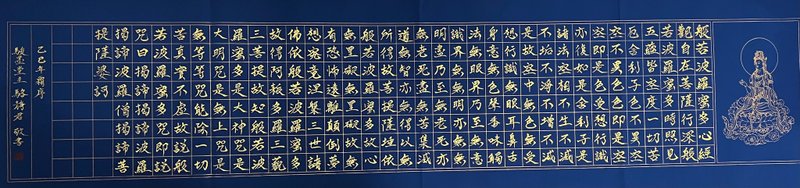 般若波羅蜜多心經
觀自在菩薩行深般
若波羅蜜多時照見
五蘊皆空度一切苦
厄舍利子色不異空
空不異色色即是空
空即是色受想行識
亦復如是舍利子是
諸法空相不生不滅
不垢不淨不增不減
是故空中無色無受
想行識無眼耳鼻舌
身意無色聲香味觸
法無眼界乃至無意
識界無無明亦無無
明盡乃至無老死亦
無老死盡無苦集滅
道無智亦無得以無
所得故菩提薩埵依
般若波羅蜜多故心
無罣礙無罣礙故無
有恐怖遠離顛倒夢
想究竟涅槃三世諸
佛依般若波羅蜜多
故得阿耨多羅三藐
三菩提故知般若波
羅蜜多是大神咒是
大明咒是無上咒是
無等等咒能除一切
苦真實不虛故說般
若波羅蜜多咒即說
咒曰揭諦揭諦波羅
揭諦波羅僧揭諦菩
提薩婆訶
乙巳年
墨堂主 敬書